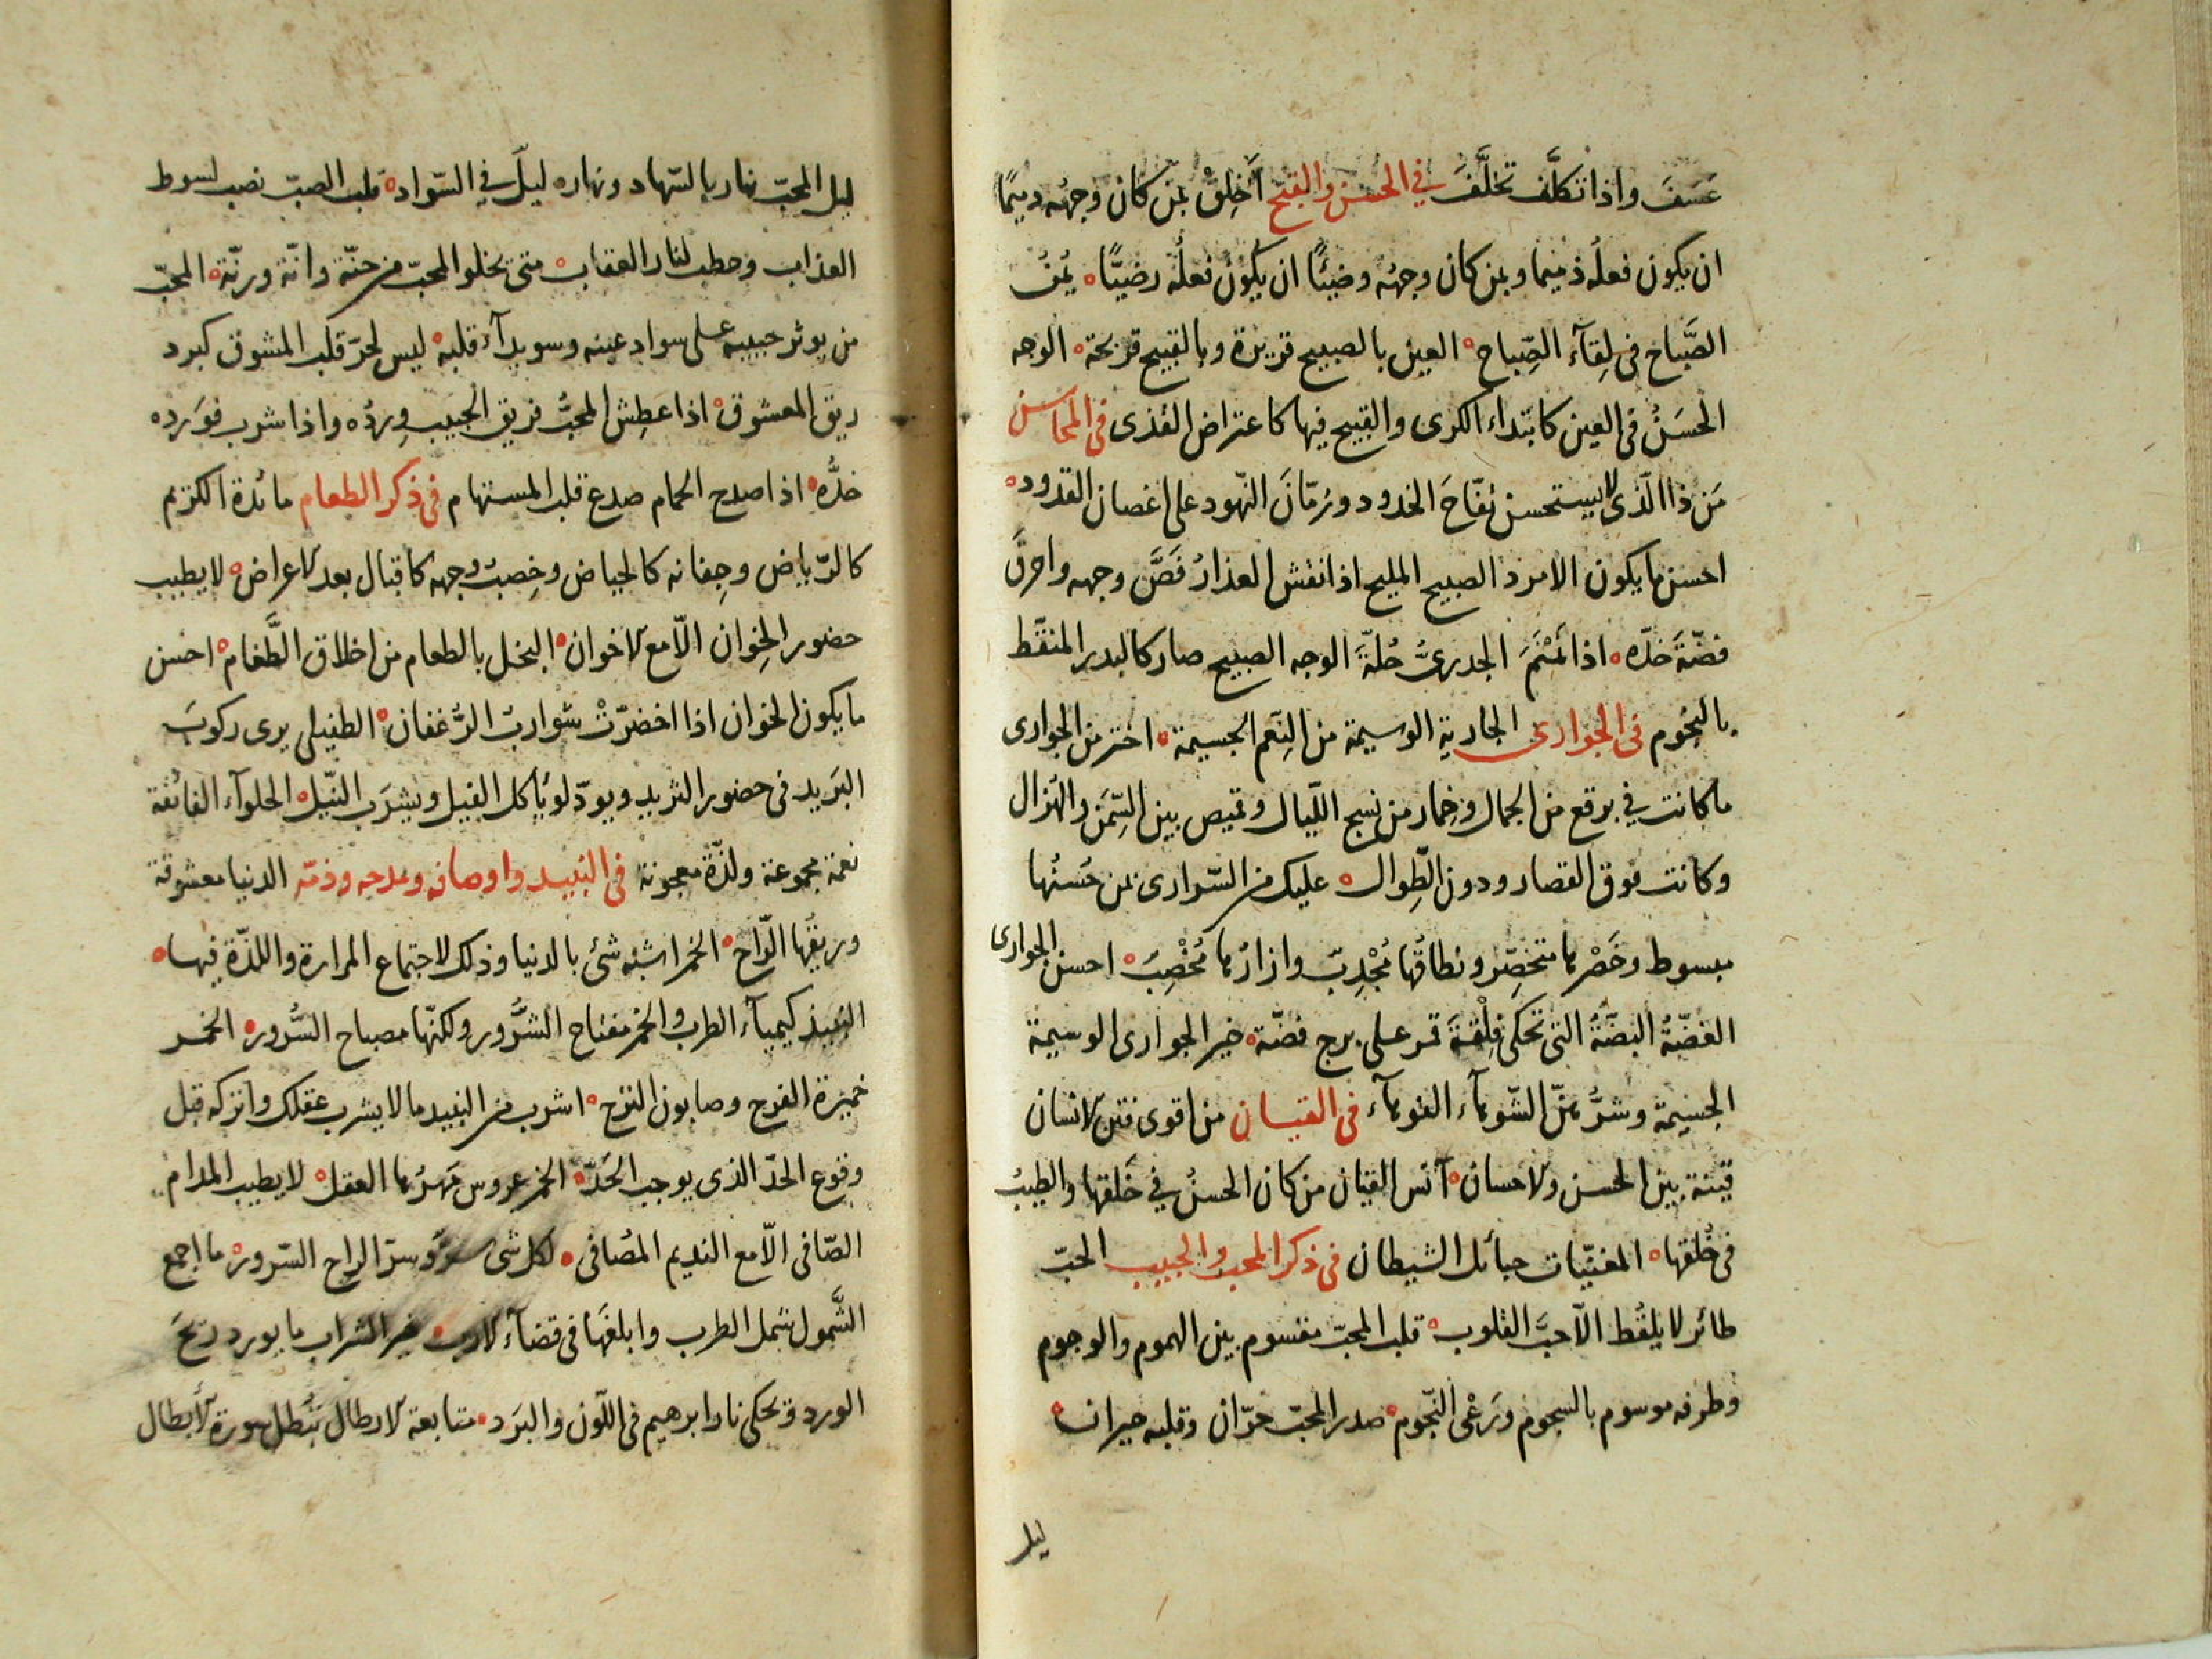 عَسَفَ واذا تكلَّف تخلَّفَ في الحُسْن والقبح أَخْلِقْ بمن كان وجهُه دميمًا
ان يكون فعلُه ذميما وبمن كان وجهُه وضيئًا ان يكون فعلُه رضيًّا ۰ يُمْنُ
الصَّباح فى لِقآء الصِّباح ۰ العين بالصبيح قريرة وبالقبيح قريحة ۰ الوجه
الحسَنُ فى العين كابتداء الكرى والقبيح فيها كاعتراض القذى فى المحاسن
مَن ذا الّذى لا يستحسن تفّاحَ الخدود ورُمّانَ النّهود على اغصان القدود ۰
احسن ما يكون الامرد الصبيح المليح اذا نقش العذارُ فَصَّ وجهه واحرقَ
فضّةَ خدّه ۰ اذا نَمْنَمَ الجدرىُّ حُلّةَ الوجه الصبيح صار كالبدر المنقّط
بالنجوم فى الجوارى الجارية الوسيمة من النِّعَم الجسيمة ۰ اختر من الجوارى
ما كانت في برقع من الجمال وخمار من نسج اللّيال وقميص بين السِّمَن والهُزال
وكانت فوق القصار ودون الطِّوال ۰ عليك من السّرارى بمن حُسنُها
مبسوط وخَصْرها مختصر ونطاقُها مُجْدِبٌ وازارُها مُخْصِبٌ ۰ احسن الجوارى
الغضّةُ البَضّةُ التى تحكى فِلْقةَ قمر على برج فضّة ۰ خير الجوارى الوسيمة
الجسيمة وشرُّهنّ الشّوهآء الفوهآء فى القيان من اقوى فتن الانسان
قينة بين الحسن والاحسان ۰ آنس القيان من كان الحسنُ في خَلقها والطيبُ
فى خُلقها ۰ المغنّيات حبائل الشيطان فى ذكر المحب والحبيب الحبّ
طائر لا يلقُط الّا حبَّ القلوب ۰ قلب المحبّ مقسوم بين الهموم والوجوم
وطرفه موسوم بالسجوم ورَعْى النّجوم ۰ صدر المحبّ حرّان وقلبه حيران ۰
ليل
ليل المحبّ نهار بالسّهاد ونهاره ليلٌ في السّواد ۰ قلب الصبّ نصب لسوط
العذاب وحطب لنار العقاب ۰ متى يخلو المحبّ من حنّة وانّة ورنّة ۰ المحبّ
من يوثر حبيبه على سواد عينه وسويدآء قلبه ۰ ليس لحرّ قلب المشوق كبرد
ريق المعشوق ۰ اذا عطِش المحبُّ فريق الحبيب وِردُه واذا شرب فوَرده
خدُّه ۰ اذا صدح الحمام صدع قلب المستهام فى ذكر الطعام مائدة الكريم
كالرّياض وجِفانه كالحياض وخِصبُ وجهه كاقبال بعد الاعراض ۰ لا يطيب
حضور الخِوان الّا مع الاخوان ۰ البخل بالطعام من اخلاق الطَّغام ۰ احسن
ما يكون الخوان اذا اخضرّتْ شواربُ الرُّغفان ۰ الطفيلى يرى ركوبَ
البَريد فى حضور الثريد ويودّ لو يأكل الفيل ويشرَب النّيل ۰ الحلوآء الفائقة
نعمة مجموعة ولذّة معجونة فى النبيد واوصافه ومدحه وذمّه الدنيا معشوقة
وريقُها الرّاح ۰ الخمر اشبه شئ بالدنيا وذلك لاجتماع المرارة واللذّة فيها ۰
النبيذ كيميآء الطرب والخمر مفتاح الشُّرور ولكنّها مصباح السُّرور ۰ الخمر
خميرة الفرح وصابون الترح ۰ اشرب من النبيد ما لا يشرب عقلك واتركه قبل
وقوع الحدّ الذى يوجب الحَدّ ۰ الخمر عروس مَهرُها العقل ۰ لا يطيب المدام
الصّافى الّا مع النديم المُصافى ۰ لكل شى سرّ وسرّ الراح السّرور ۰ ما اجمع
الشَّمول لشمل الطرب وابلغَها فى قضآء الارب ۰ خير الشراب ما يورد ريحَ
الورد ويحكى نار ابرهيم فى اللّون والبَرد ۰ متابعة الارطال تُبْطل سورة الابطال